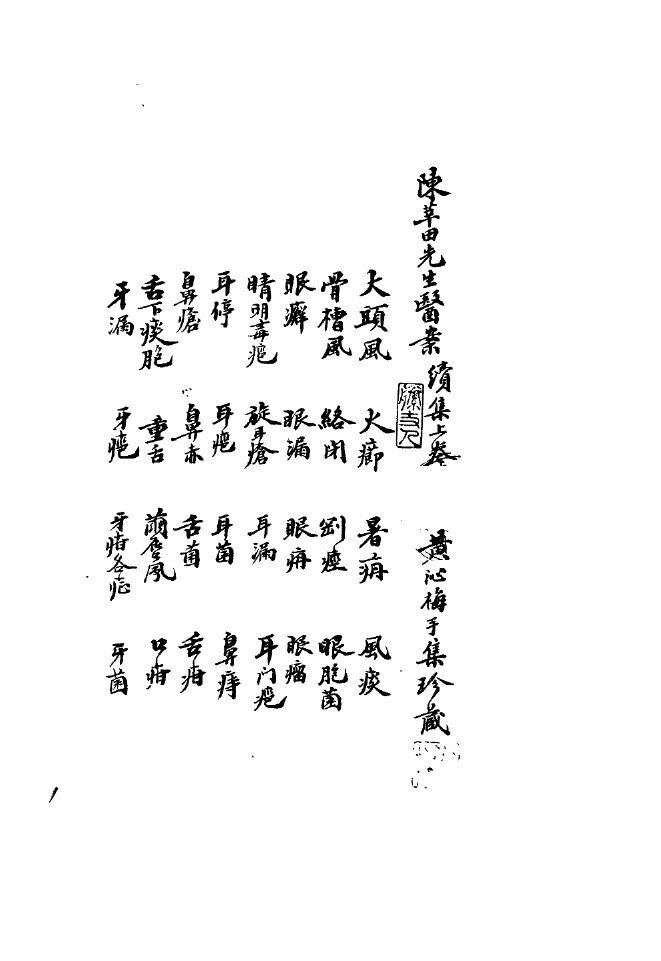 陳莘田先生醫案 續集上卷 黃沁梅手集珍藏
大頭風 火癤 暑㾂 風痰
骨槽風 絡閉 劄痙 眼胞菌
眼癬 眼漏 眼㾂 眼瘤
睛明毒疤 旋耳瘡 耳漏 耳门疤
耳停 耳疤 耳菌 鼻痔
鼻瘡 鼻赤 舌菌 舌疳
舌下痰胞 重舌 繭唇風 口疳
牙漏 牙疤 牙㾂各症 牙菌